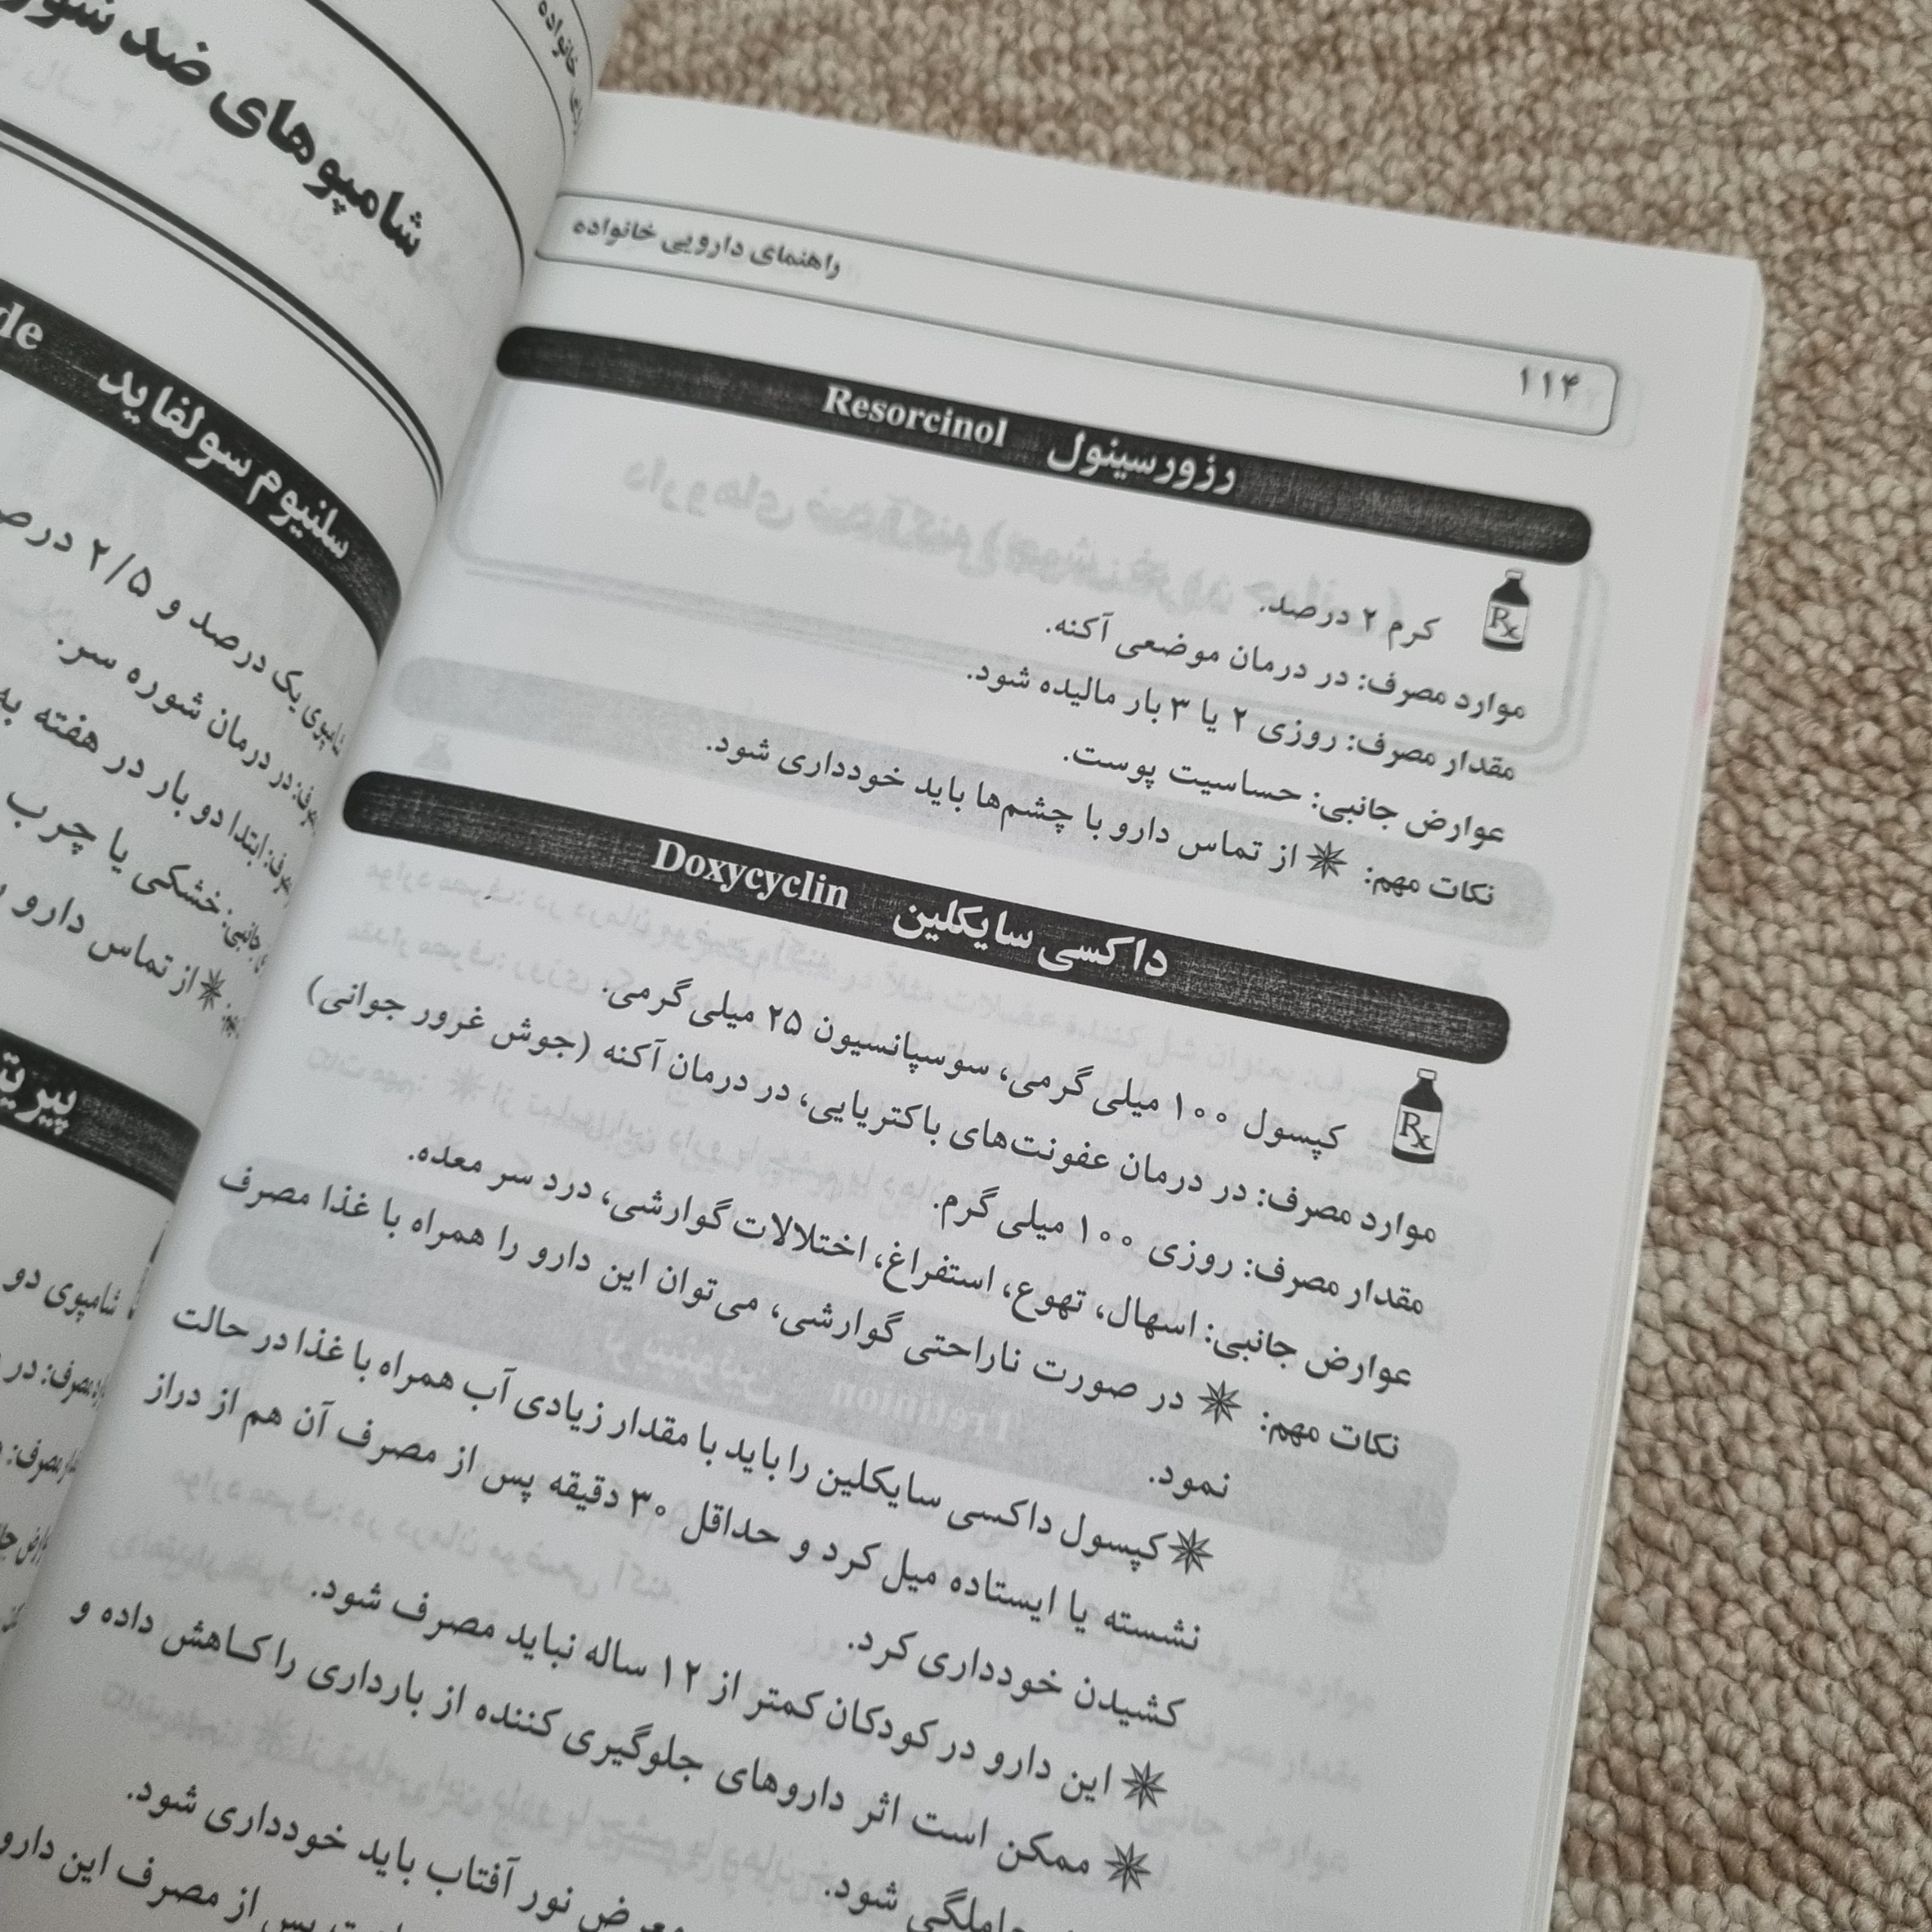 راهنمای دارویی خانواده
۱۱۴
رزورسینول Resorcinol
Rx
کرم ۲ درصد.
موارد مصرف: در درمان موضعی آکنه.
مقدار مصرف: روزی ۲ یا ۳ بار مالیده شود.
عوارض جانبی: حساسیت پوست.
نکات مهم: ✴ از تماس دارو با چشم‌ها باید خودداری شود.
داکسی سایکلین Doxycyclin
Rx
کپسول ۱۰۰ میلی گرمی، سوسپانسیون ۲۵ میلی گرمی.
موارد مصرف: در درمان عفونت‌های باکتریایی، در درمان آکنه (جوش غرور جوانی)
مقدار مصرف: روزی ۱۰۰ میلی گرم.
عوارض جانبی: اسهال، تهوع، استفراغ، اختلالات گوارشی، درد سر معده.
نکات مهم: ✴ در صورت ناراحتی گوارشی، می‌توان این دارو را همراه با غذا مصرف
نمود.
✴ کپسول داکسی سایکلین را باید با مقدار زیادی آب همراه با غذا در حالت
نشسته یا ایستاده میل کرد و حداقل ۳۰ دقیقه پس از مصرف آن هم از دراز
کشیدن خودداری کرد.
✴ این دارو در کودکان کمتر از ۱۲ ساله نباید مصرف شود.
✴ ممکن است اثر داروهای جلوگیری کننده از بارداری را کاهش داده و
حاملگی شود.
نور آفتاب باید خودداری شود.
پس از مصرف این دارو
خانواده
شامپوهای ضد
سلنیوم سولفاید
شامپوی یک درصد و ۲/۵
در درمان شوره سر.
ابتدا دو بار در هفته
خشکی یا چرب
✴ از تماس دارو
شامپوی دو